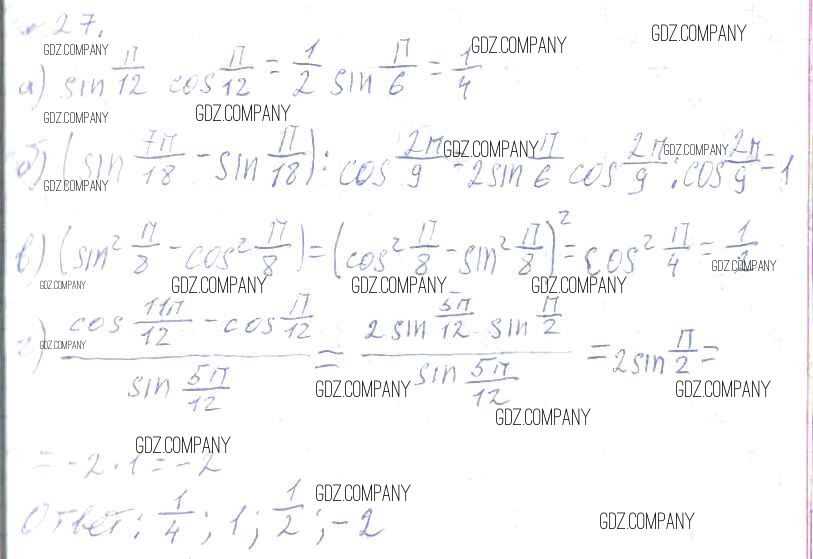 № 27.
GDZ.COMPANY GDZ.COMPANY GDZ.COMPANY
а) sin π/12 cos π/12 = 1/2 sin π/6 = 1/4
GDZ.COMPANY GDZ.COMPANY
б) (sin 7π/18 - sin π/18) : cos 2π/9 = 2 sin π/6 cos 2π/9 : cos 2π/9 = 1
GDZ.COMPANY GDZ.COMPANY GDZ.COMPANY
в) (sin² π/8 - cos² π/8) = (cos² π/8 - sin² π/8)² = cos² π/4 = 1/2
GDZ.COMPANY GDZ.COMPANY GDZ.COMPANY GDZ.COMPANY GDZ.COMPANY
г) (cos 11π/12 - cos π/12)/(sin 5π/12) = (2 sin 5π/12 sin π/2)/(sin 5π/12) = 2 sin π/2 =
GDZ.COMPANY GDZ.COMPANY GDZ.COMPANY
GDZ.COMPANY
GDZ.COMPANY
= -2 · 1 = -2
GDZ.COMPANY
Ответ: 1/4; 1; 1/2; -2
GDZ.COMPANY